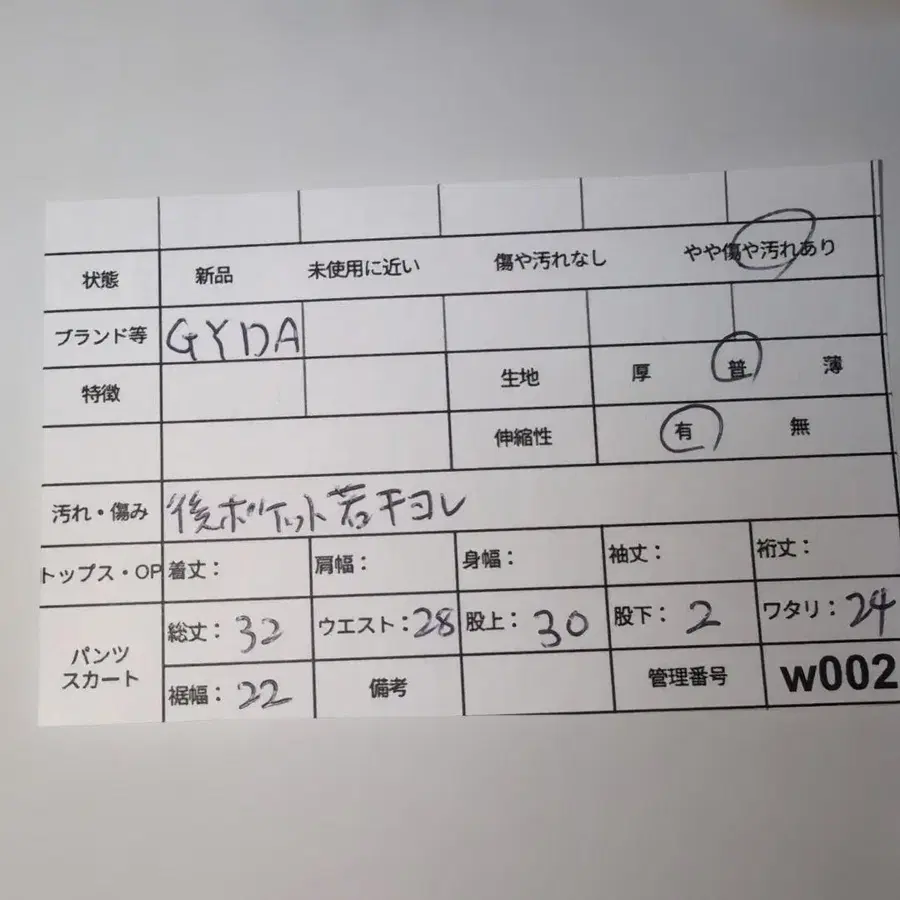 状態 新品 未使用に近い 傷や汚れなし やや傷や汚れあり
ブランド等 GYDA
特徴 生地 厚 普 薄
伸縮性 有 無
汚れ・傷み 後ポケット若干ヨレ
トップス・OP 着丈: 肩幅: 身幅: 袖丈: 裄丈:
パンツ
スカート
総丈: 32 ウエスト: 28 股上: 30 股下: 2 ワタリ: 24
裾幅: 22 備考 管理番号 w002